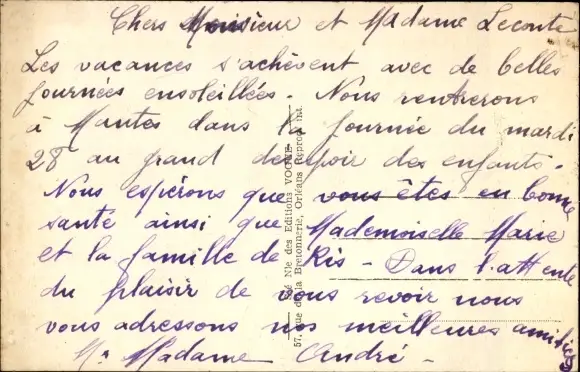 Chers Monsieur et Madame Leconte
Les vacances s'achèvent avec de belles
journées ensoleillées. Nous rentrerons
à Mantes dans la journée du mardi
28 au grand désespoir des enfants.
Nous espérons que vous êtes en bonne
santé ainsi que Mademoiselle Marie
et la famille de Ris - Dans l'attente
du plaisir de vous revoir nous
vous adressons nos meilleures amitiés
Mr Madame André -
Sté Nlle des Editions VOGUE
57, Rue de la Bretonnerie, Orléans Reprod. int.